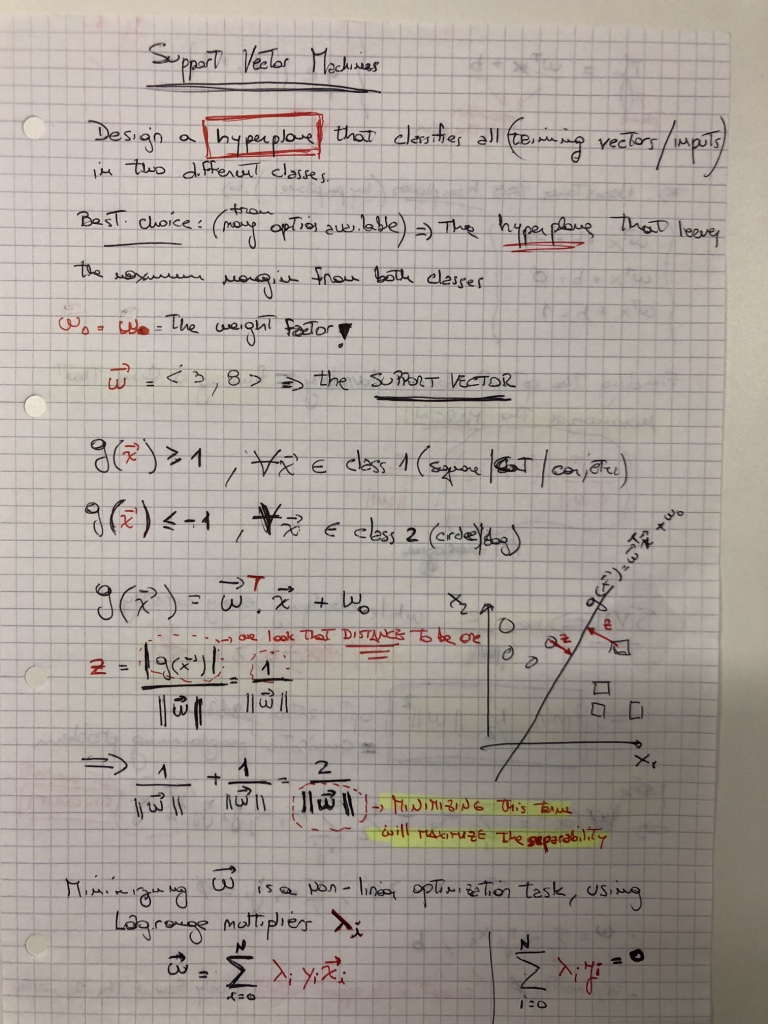 Support Vector Machines
Design a hyperplane that classifies all (training vectors/inputs)
in two different classes.
Best choice: (from many options available) => The hyperplane that leaves
the maximum margin from both classes
ω₀ = = The weight factor!
ω⃗ = <3, 8> => the SUPPORT VECTOR
g(x⃗) ≥ 1 , ∀x⃗ ∈ class 1 (square/cat/car, etc)
g(x⃗) ≤ -1 , ∀x⃗ ∈ class 2 (circle/dog)
g(x⃗) = ω⃗ᵀ. x⃗ + ω₀
→ we look that DISTANCE to be one
z = |g(x⃗)| / ||ω⃗|| = 1 / ||ω⃗||
g(x⃗) = ω⃗ᵀx⃗ + ω₀
x₂
z
z
x₁
=> 1/||ω⃗|| + 1/||ω⃗|| = 2/||ω⃗|| → MINIMIZING this term
will MAXIMIZE the separability
Minimizing ω⃗ is a non-linear optimization task, using
Lagrange multipliers λᵢ
ω⃗ = ∑ᵢ₌₀ᴺ λᵢ yᵢ x⃗ᵢ | ∑ᵢ₌₀ᴺ λᵢ yᵢ = 0